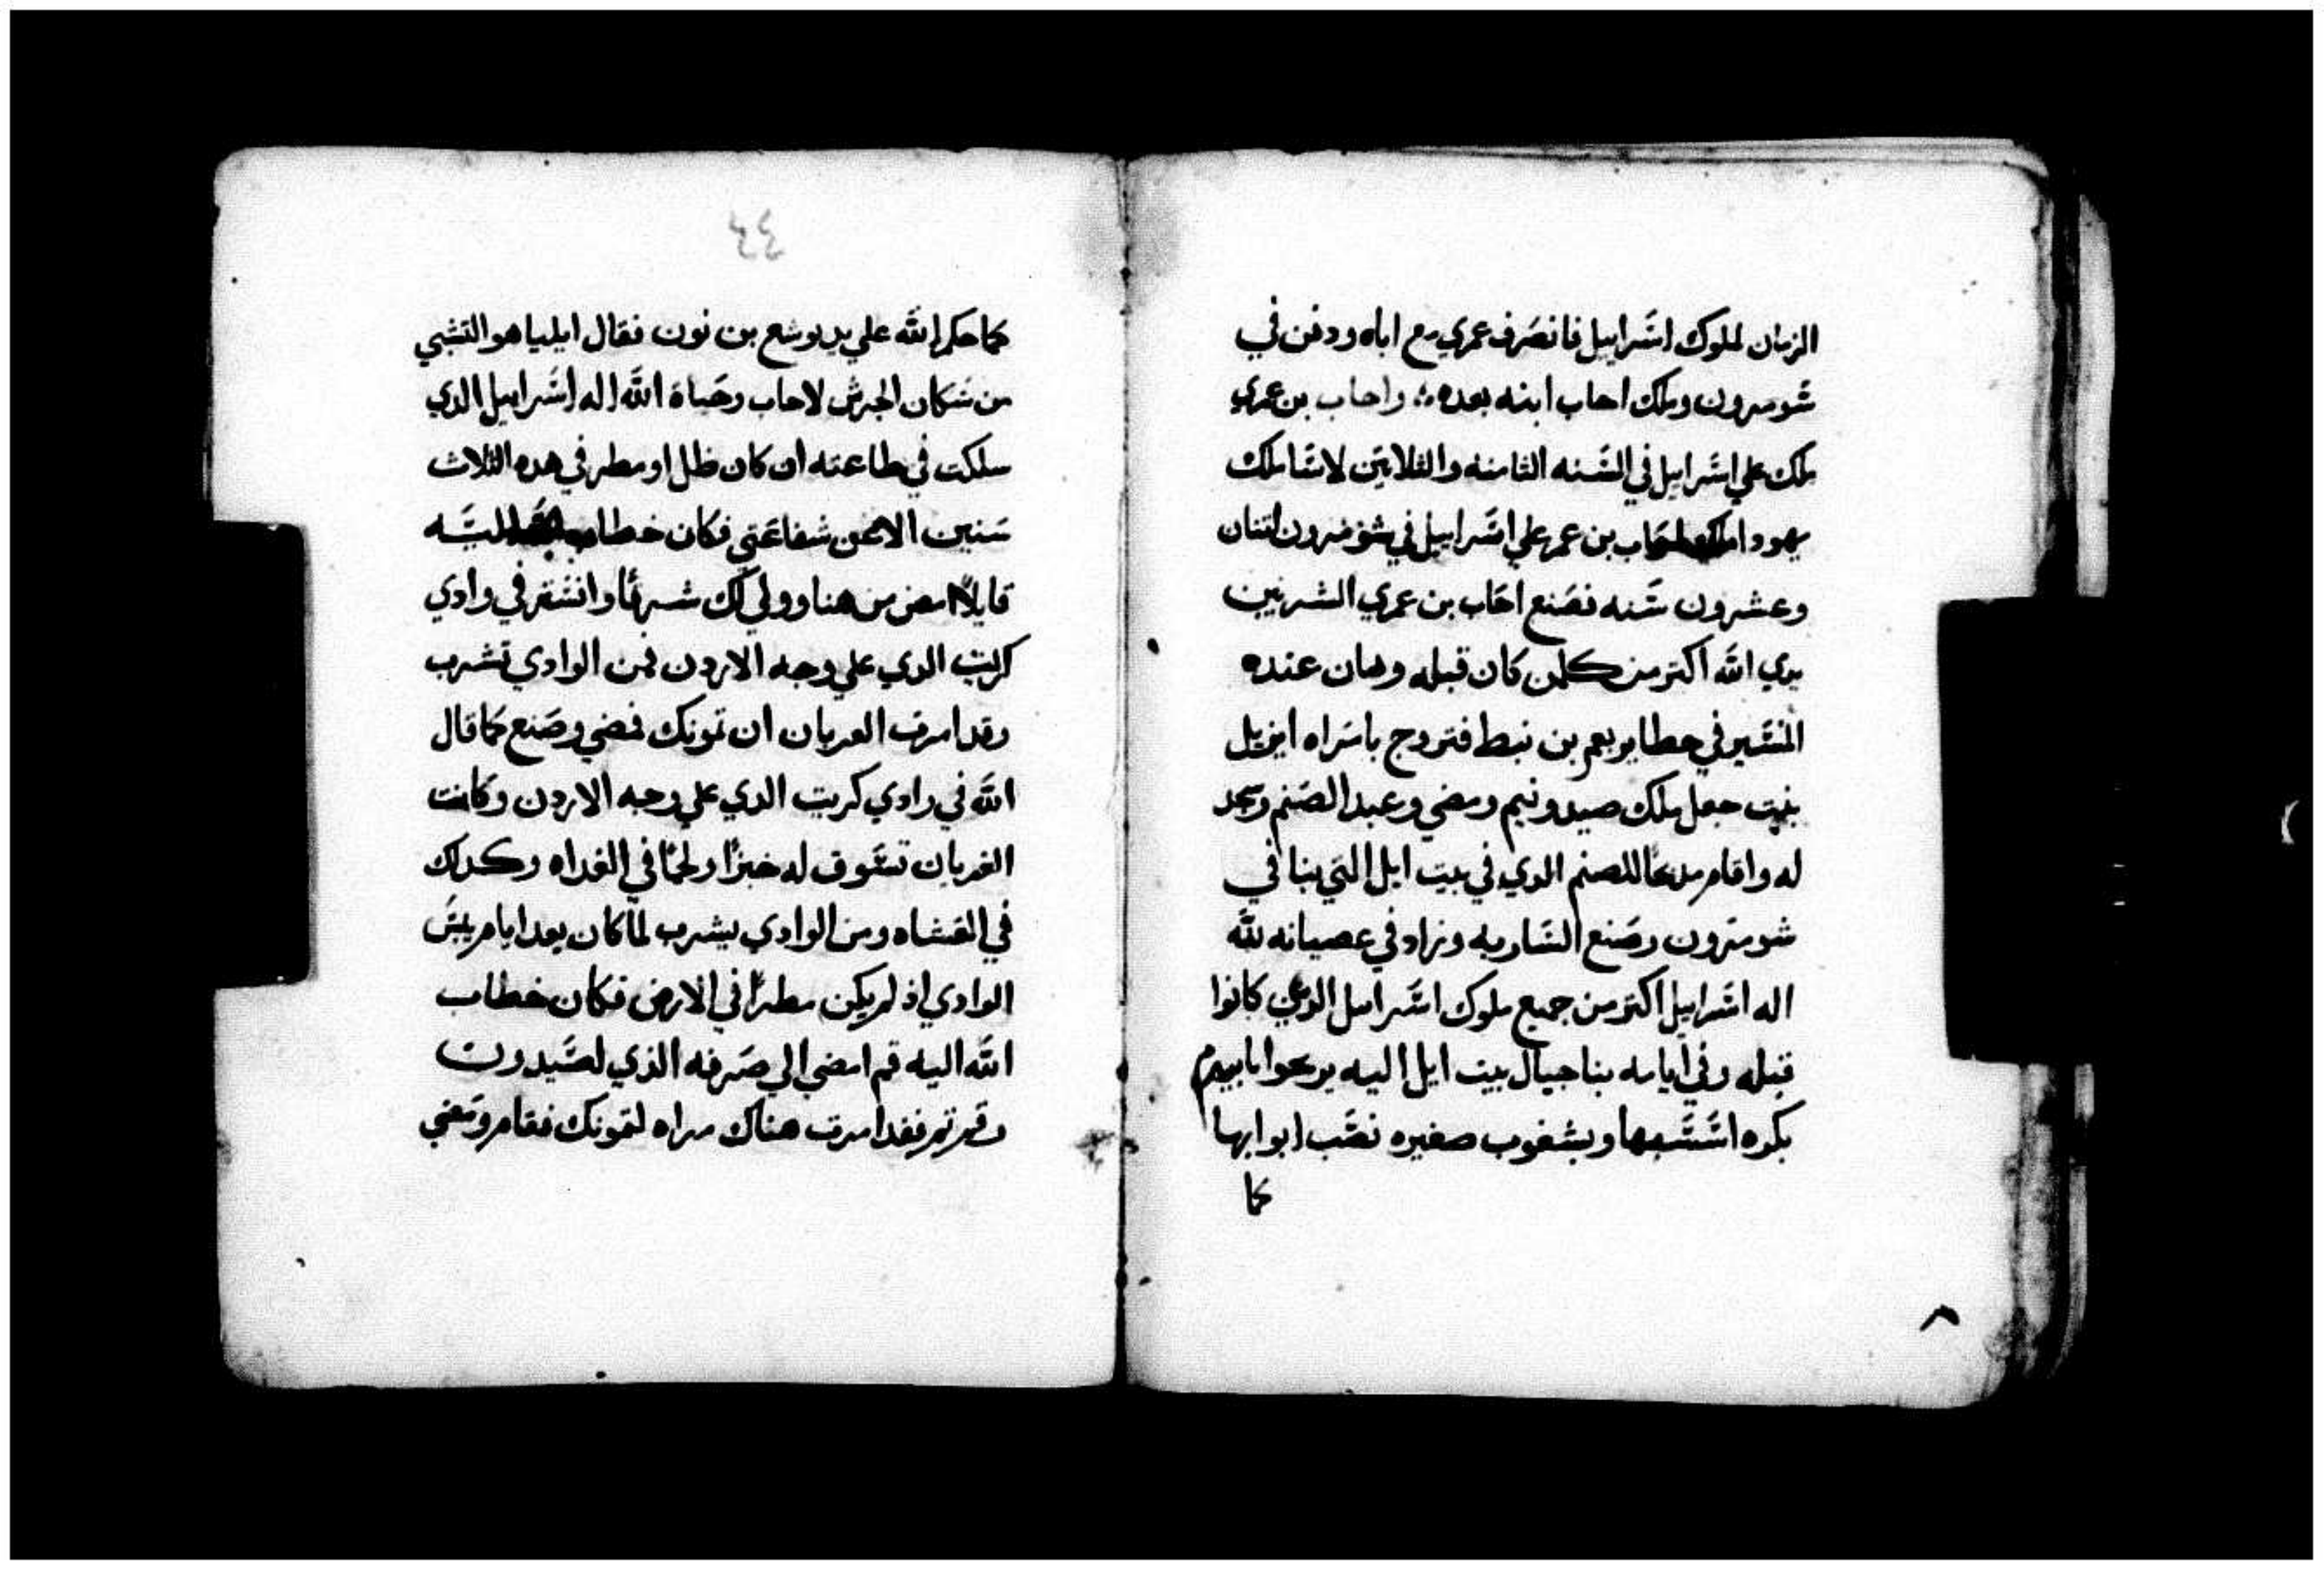 الزمان لملوك اسَرايىل فانصَرف عمري مع اباه ودفن في
شومرون وملك احاب ابنه بعده واحاب بن عمري
ملك علي اسَرايىل في السَنه الثامنه والثلاثين لاسَا ملك
يهودا احَاب بن عمري علي اسَراييل في شومرون اثنان
وعشرون سَنه فصَنع احَاب بن عمري الشر بين
يدي الله اكتر من كلمن كان قبله وهان عنده
المسَير في خطا يربعم بن نبط فتزوج بامراه ايزبل
بنت جبعل ملك صيدونيم ومضي وعبد الصَنم وسجد
له واقام مدبحًا للصنم الدي في بيت ابل التي بنا في
شومرون وصَنع السَاريه وزاد في عصيانه لله
اله اسَراييل اكتر من جميع ملوك اسَراييل الدي كانوا
قبله وفي ايامه بنا حيال بيت ايل اليه يريحوا بابيرم
بكره اسَسَها وبشغوب صغيره نصَب ابوابها
كما
٤٤
كما حكم الله علي يد يوشع بن نون فقال ايليا هو التشبي
من سَكان الجرش لاحاب وحَياة الله اله اسَراييل الدي
سلكت في طاعته ان كان طل او مطر في هده الثلاث
سَنين الا عن شفاعَتي فكان خطاب الله اليَه
قايلاً امض من هنا وولي لك شرقًا وانسَتر في وادي
كريت الدي علي وجه الاردن فمن الوادي تشرب
وقد امرت الغربان ان تمونك فمضي وصَنع كما قال
الله في وادي كريت الدي علي وجه الاردن وكانت
الغربان تسَوق له خبزًا ولحمًا في الغداه وكدلك
في العَشاه ومن الوادي يشرب لما كان بعد ايام يبسَ
الوادي اذ لم يكن مطرًا في الارض فكان خطاب
الله اليه قم امضي الي صَرفه الذي لصَيدون
وقم تم فقد امرت هناك مراه لتمونك فقام ومَضي